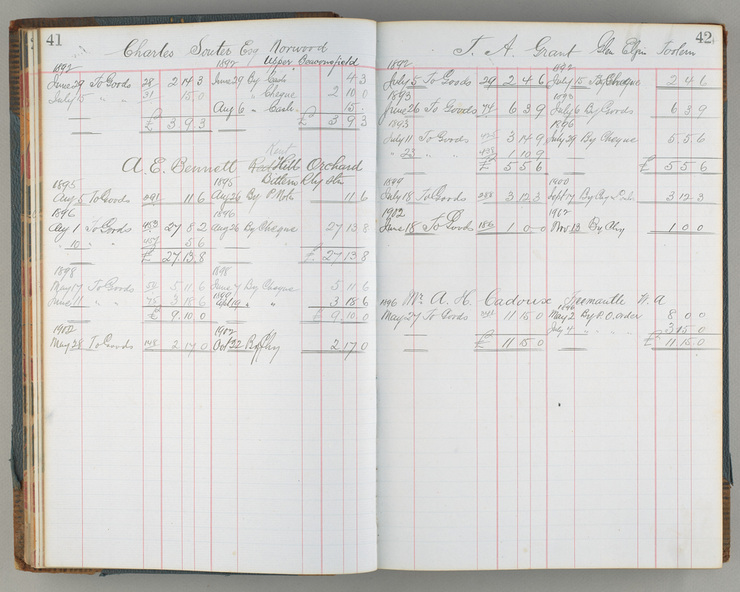 41
Charles Souter Esq Norwood
1892 1892 Upper
June 29 To Goods 28 2 14 3 June 29 By Cash 4 3
July 5 " " 31 15 0 " Cheque 2 10 0
Aug 6 " Cash 15
£ 3 9 3 £ 3 9 3
Kent
A. E. Bennett Hill Orchard
1895 1895
Aug 5 To Goods 11 6 Aug 26 By P. Note 11 6
1896 1896
Aug 1 To Goods 453 27 8 2 Aug 26 By Cheque 27 13 8
" 10 " " 457 5 6
£ 27 13 8 £ 27 13 8
1898 1898
May 17 To Goods 5 11 6 June 7 By Cheque 5 11 6
June 11 " " 75 3 18 6 " " 3 18 6
£ 9 10 0 £ 9 10 0
1902 1902
May 28 To Goods 148 2 17 0 Oct 22 By Chq 2 17 0
42
T. A. Grant Glen Elgin Toolern
1892 1892
July 5 To Goods 29 2 4 6 July 15 By Cheque 2 4 6
1893 1893
June 26 To Goods 74 6 3 9 July 6 By Goods 6 3 9
1893 1896
July 11 To Goods 3 14 9 July 29 By Cheque 5 5 6
" 23 " " 1 10 9
£ 5 5 6 £ 5 5 6
1899 1900
July 18 To Goods 3 12 3 Sept 17 By 3 12 3
1902 1902
June 18 To Goods 186 1 0 0 Nov 13 By Chq 1 0 0
1896 Mr. A. H. Cadoux Fremantle W. A
May 27 To Goods 11 15 0 May 2 By P. O. order 8 0 0
July 4 " " 3 15 0
£ 11 15 0 £ 11 15 0